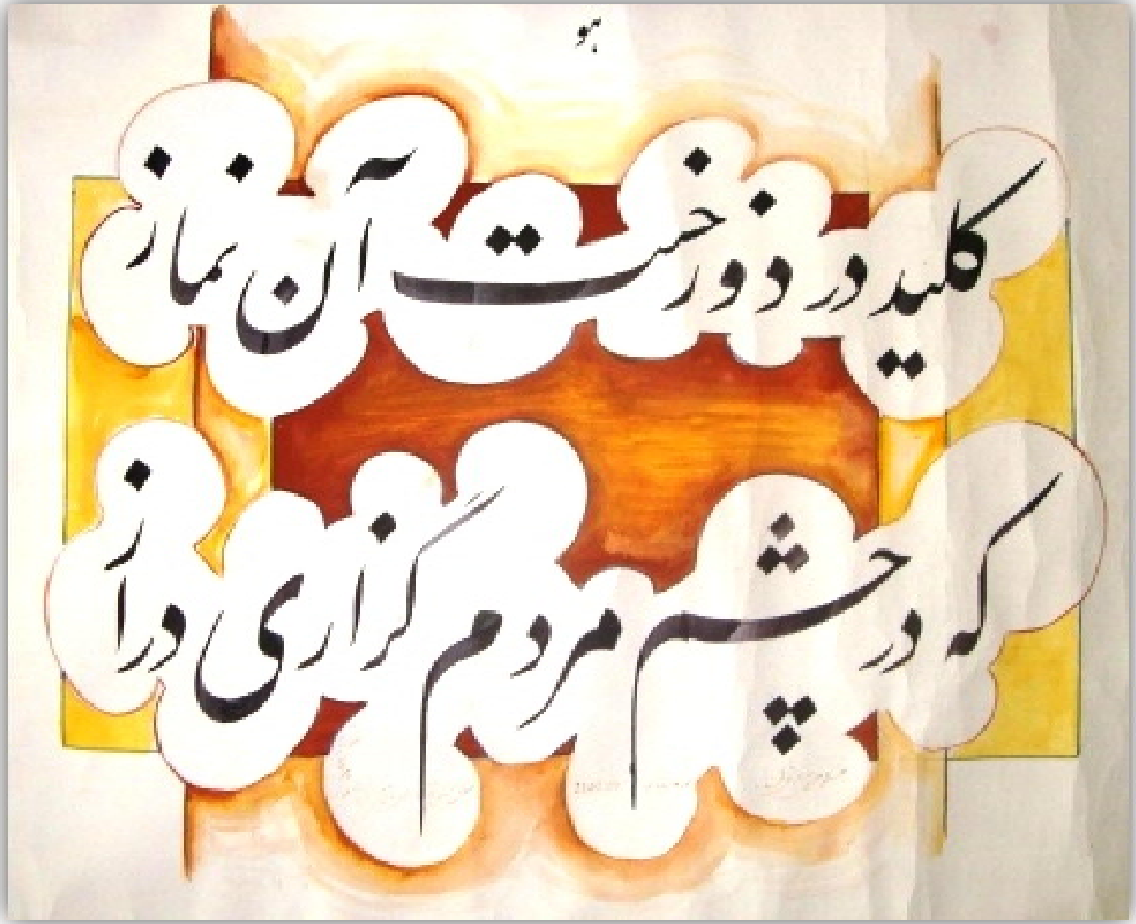 هو
کلید در دوزخست آن نماز
که در چشم مردم گزاری دراز